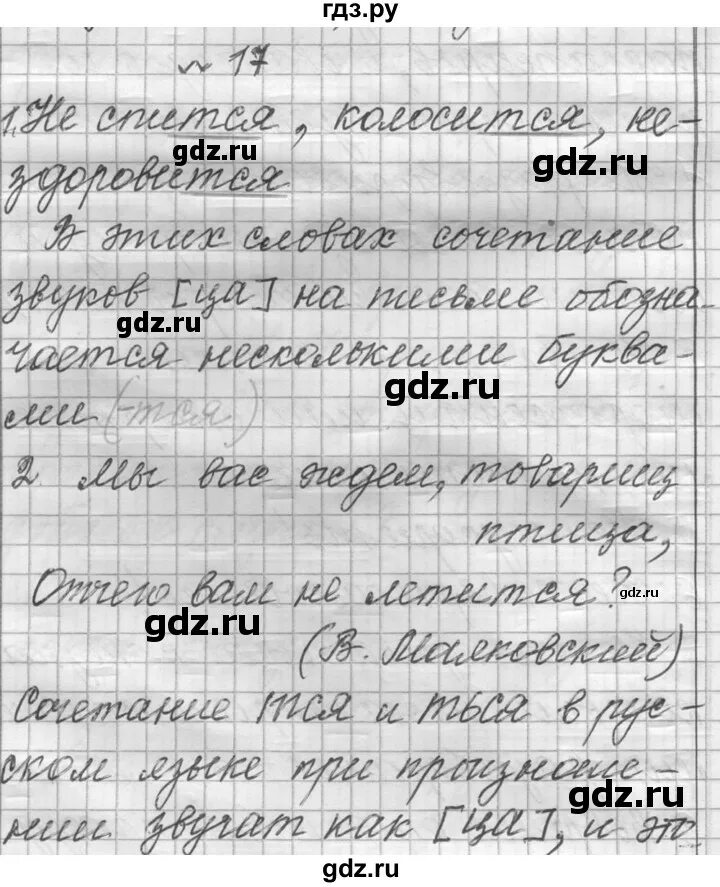 гдз.ру
№ 17
1. Не спится, колосится, не-
здоровится
В этих словах сочетание
звуков [ца] на письме обозна-
чается несколькими буква-
ми (-тся)
2. Мы вас ждем, товарищ
птица,
Отчего вам не летится?
(В. Маяковский)
Сочетание тся и ться в рус-
ском языке при произноше-
нии звучат как [ца], и это
gdz.ru
gdz.ru
gdz.ru
gdz.ru
gdz.ru
gdz.ru
gdz.ru
gdz.ru